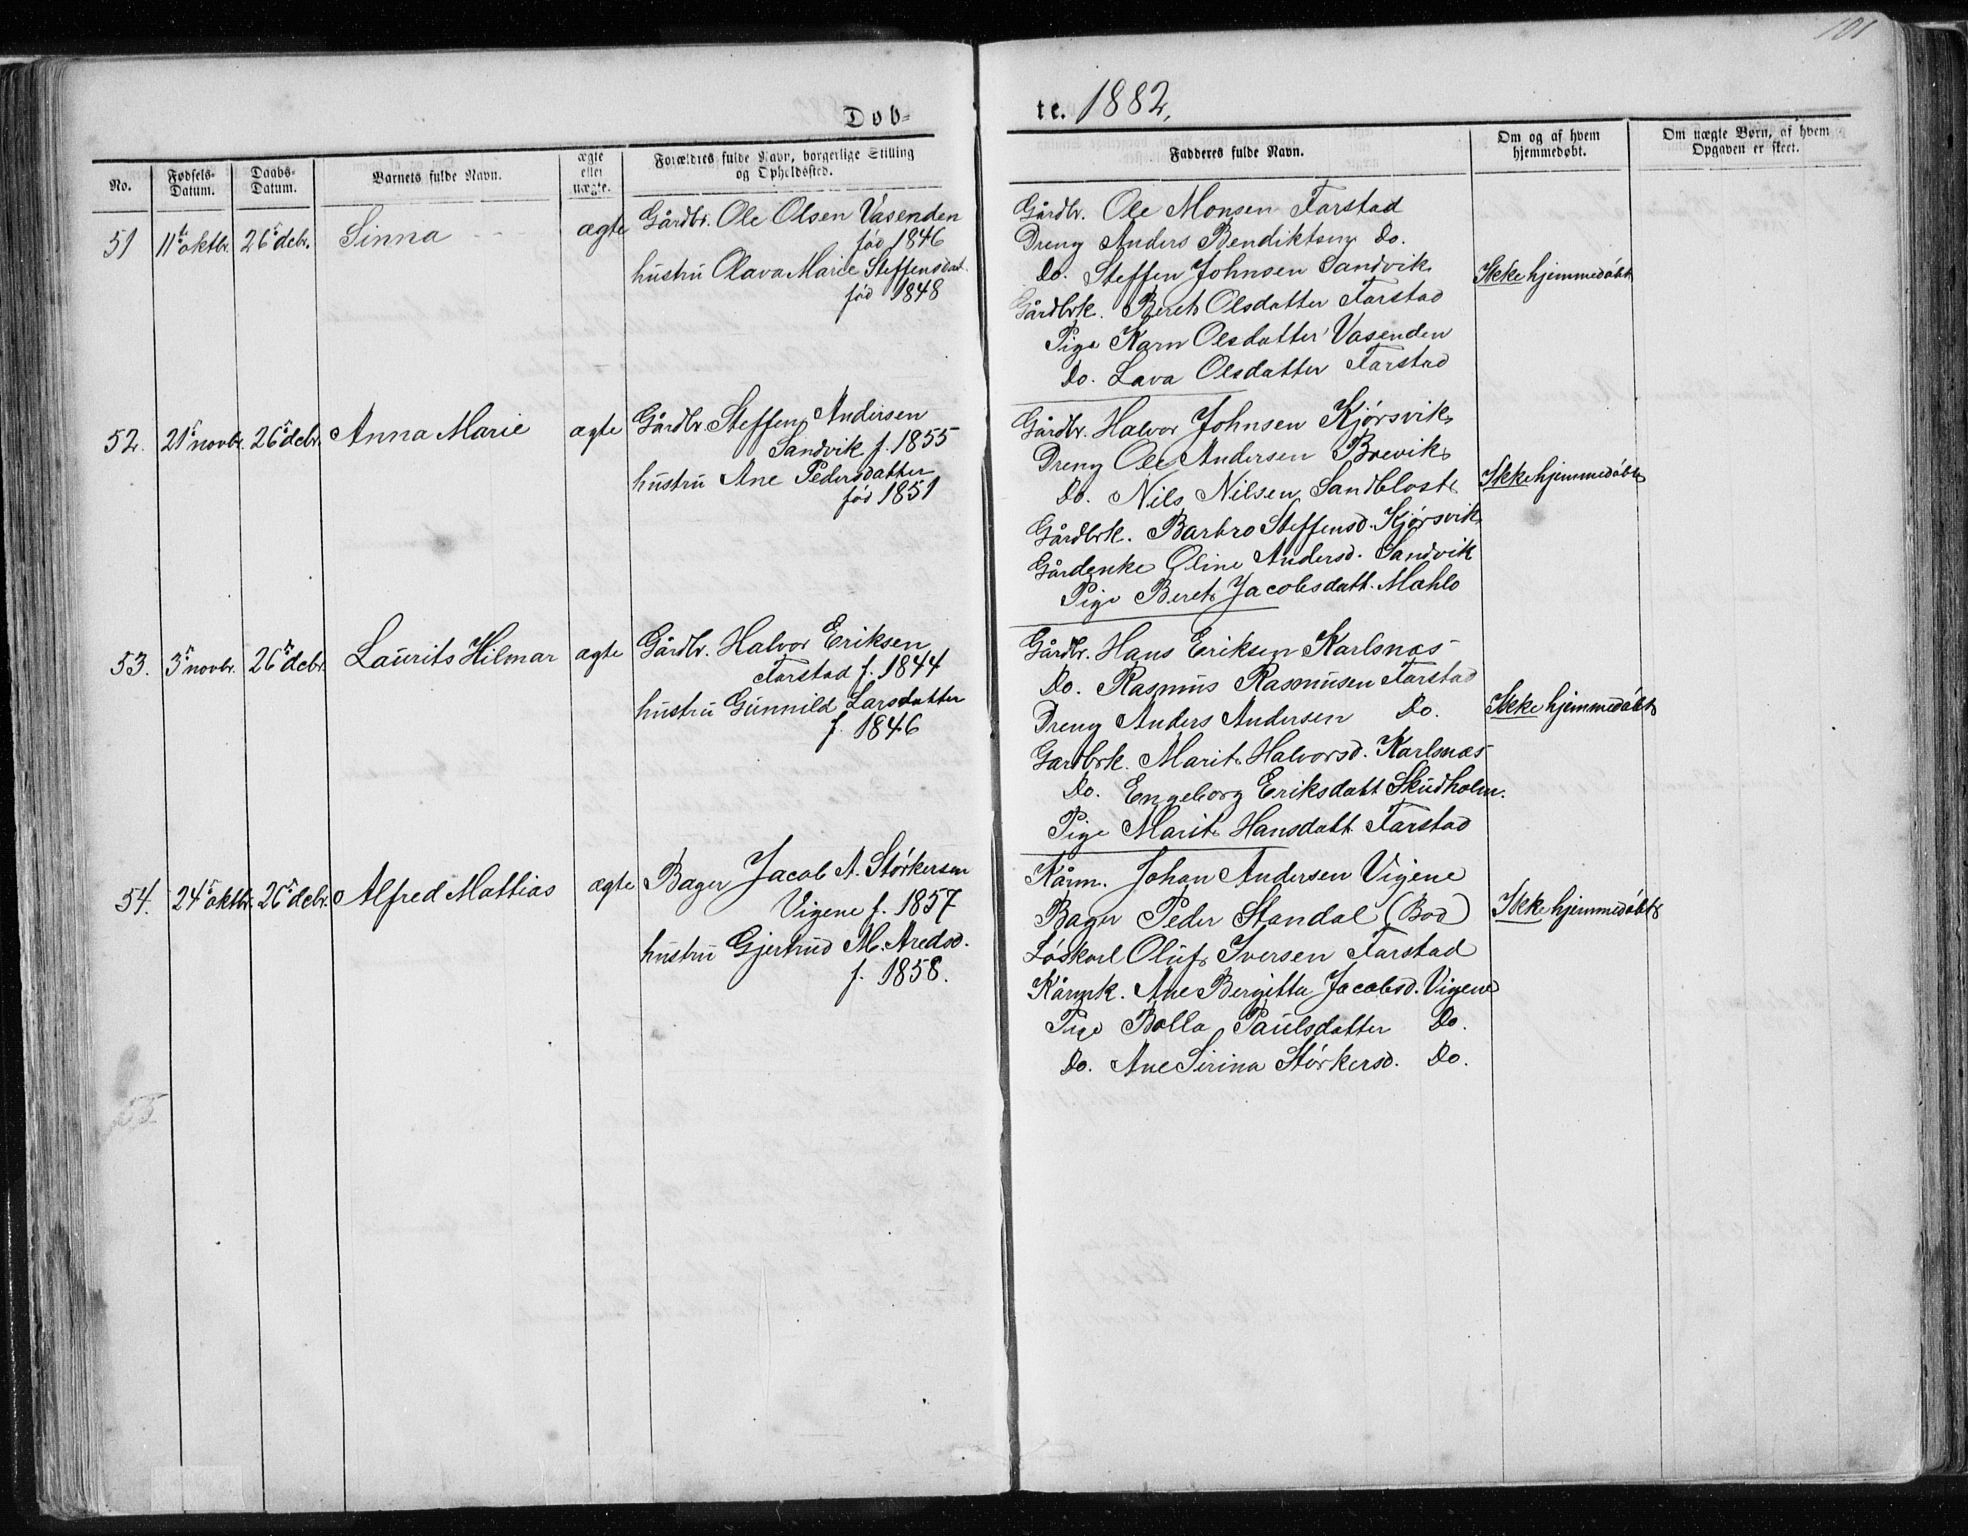 101
Døb-
te. 1882.
No.
Fødsels-
Datum.
Daabs-
Datum.
Barnets fulde Navn.
ægte
eller
uægte.
Forældres fulde Navn, borgerlige Stilling
og Opholdssted.
Fadderes fulde Navn.
Om og af hvem
hjemmedøbt.
Om uægte Børn, af hvem
Opgaven er skeet.
51 11te oktbr. 26de debr. Sinna ægte
Gårdbr. Ole Olsen Vasenden
fød 1846
hustru Olava Marie Steffensdat.
fød 1848
Gårdbr. Ole Monsen Farstad
Dreng Anders Bendiktsen Do.
Do. Steffen Johnsen Sandvik
Gårdbrk. Beret Olsdatter Farstad
Pige Karn Olsdatter Vasenden
Do. Lava Olsdatter Farstad
Ikke hjemmedøbt
52. 21de novbr. 26de debr. Anna Marie ægte
Gårdbr. Steffen Andersen
Sandvik f. 1855
hustru Ane Pedersdatter
fød 1851
Gårdbr. Halvor Johnsen Kjørsvik
Dreng Ole Andersen Brevik
Do. Nils Nilsen Sandblost
Gårdbrk. Barbro Steffensd. Kjørsvik
Gårdenke Oline Andersd. Sandvik
Pige Beret Jacobsdatt. Mahlo
Ikke hjemmedøbt
53. 3de novbr. 26de debr. Laurits Hilmar ægte
Gårdbr. Halvor Eriksen
Farstad f. 1844
hustru Gunnild Larsdatter
f. 1846
Gårdbr. Hans Eriksen Karlsnæs
Do. Rasmus Rasmusen Farstad
Dreng Anders Andersen Do.
Gardbrk. Marit Halvorsd. Karlsnæs
Do. Engeborg Eriksdatt Skudholm.
Pige Marit Hansdatt Farstad
Ikke hjemmedøbt
54. 24de oktbr. 26de debr. Alfred Mattias ægte
Bager Jacob A. Størkersen
Vigene f. 1857
hustru Gjertrud M. Aredsd.
f. 1858.
Kårm. Johan Andersen Vigene
Bager Peder Standal (Bod)
Løskarl Oluf Iversen Farstad
Kårmk. Ane Bergitta Jacobsd. Vigene
Pige Bolla Paulsdatter Do.
Do. Ane Sirina Størkersd. Do.
Ikke hjemmedøbt
55